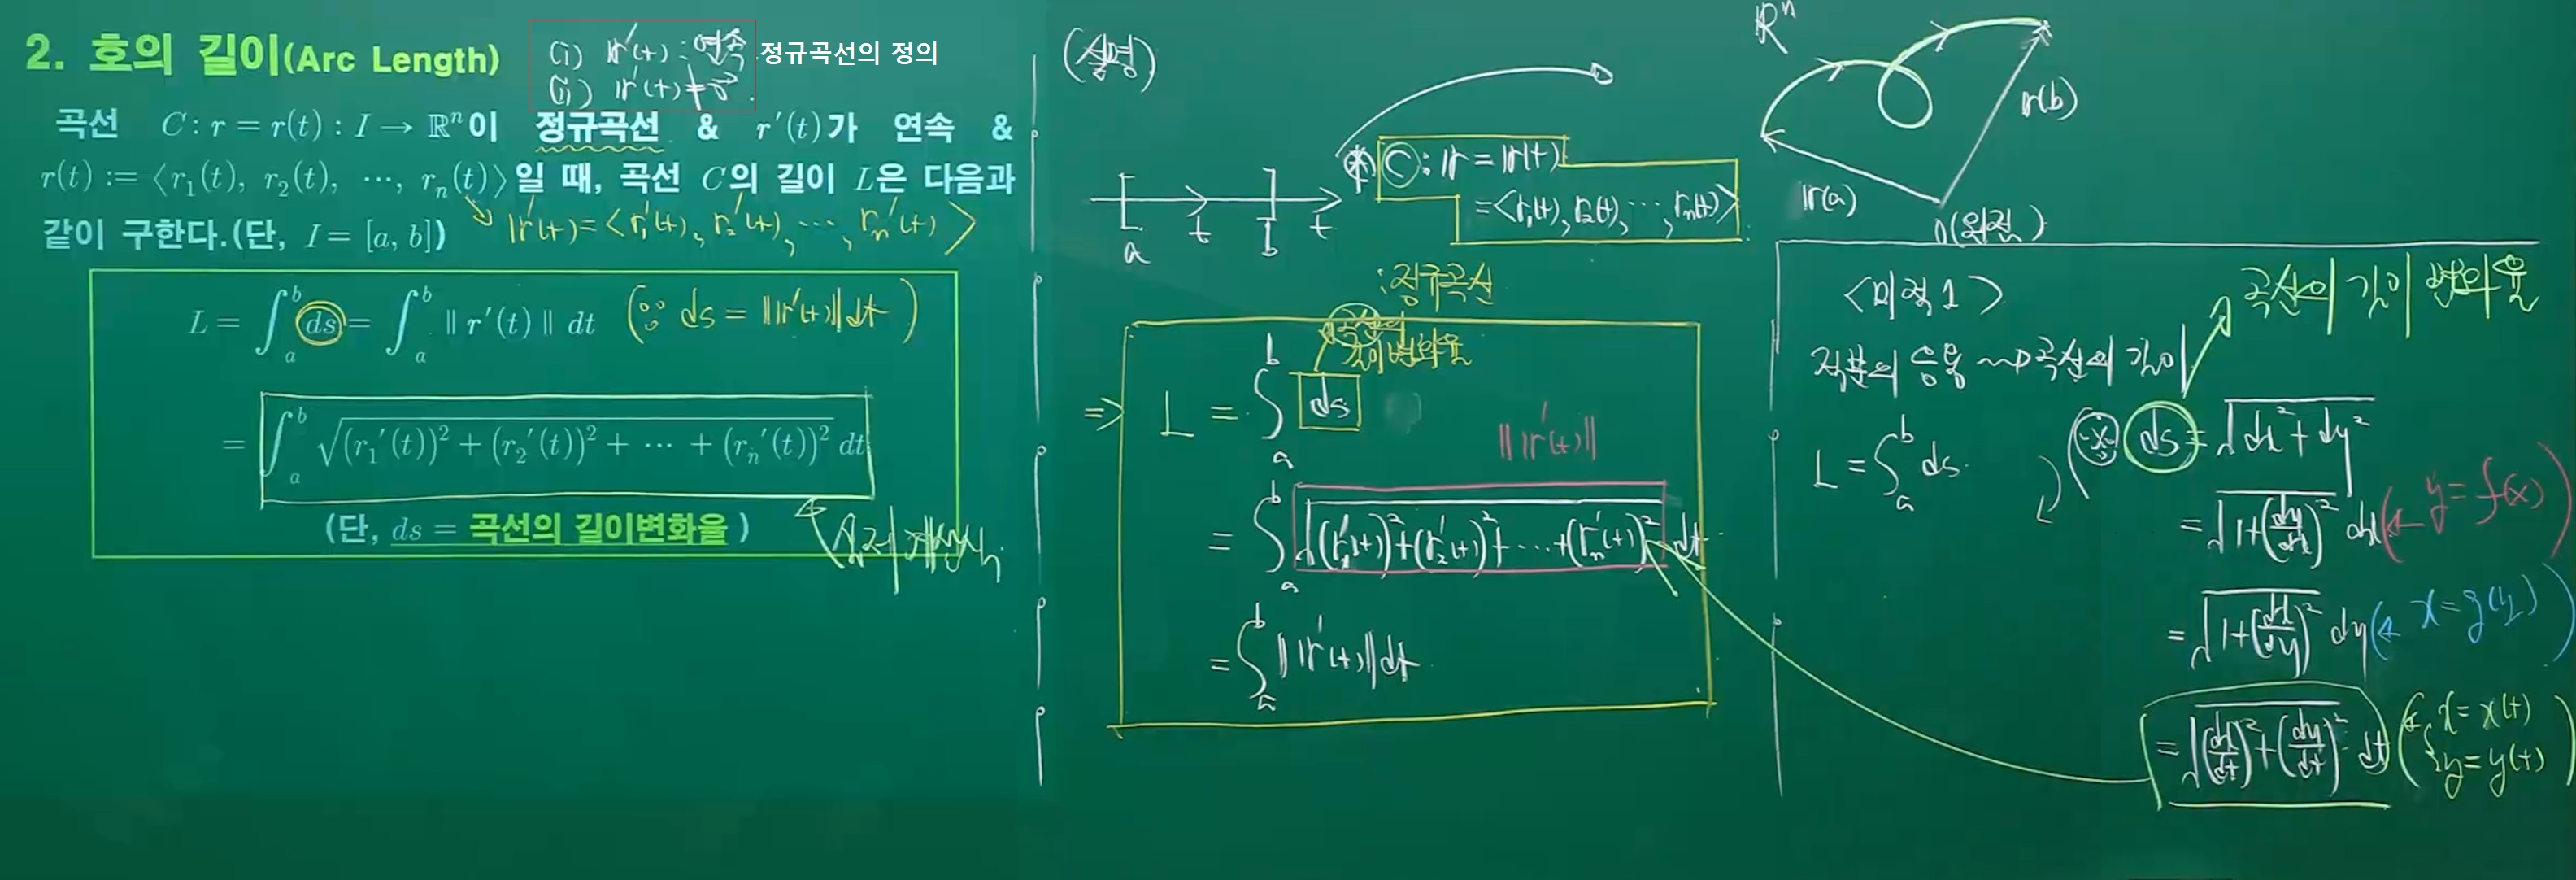 2. 호의 길이(Arc Length)
(i) r'(t) : 연속
(ii) r'(t) ≠ 0⃗.
정규곡선의 정의
곡선 C : r = r(t) : I → ℝⁿ이 정규곡선 & r'(t)가 연속 &
r(t) := ⟨r₁(t), r₂(t), ⋯, rₙ(t)⟩일 때, 곡선 C의 길이 L은 다음과
같이 구한다.(단, I = [a, b])
r'(t) = <r₁'(t), r₂'(t), ⋯, rₙ'(t)>
L = ∫ₐᵇ ds = ∫ₐᵇ ‖ r'(t) ‖ dt (∵ ds = ‖r'(t)‖dt)
= ∫ₐᵇ √((r₁'(t))² + (r₂'(t))² + ⋯ + (rₙ'(t))²) dt
(단, ds = 곡선의 길이변화율)
(설명)
a t b t
(*) C : r = r(t)
= <r₁(t), r₂(t), ⋯, rₙ(t)>
: 정규곡선
곡선의
길이변화율
⇒ L = ∫ₐᵇ ds
‖r'(t)‖
= ∫ₐᵇ √((r₁'(t))² + (r₂'(t))² + ⋯ + (rₙ'(t))²) dt
= ∫ₐᵇ ‖r'(t)‖dt
ℝⁿ
r(a)
r(b)
0(원점)
<미적1>
곡선의 길이 변화율
적분의 응용 ⇝ 곡선의 길이
L = ∫ₐᵇ ds.
(※) ds = √(dx² + dy²)
= √(1 + (dy/dx)²) dx (← y = f(x))
= √(1 + (dx/dy)²) dy (← x = g(y))
= √((dx/dt)² + (dy/dt)²) dt (← { x = x(t)
y = y(t) )